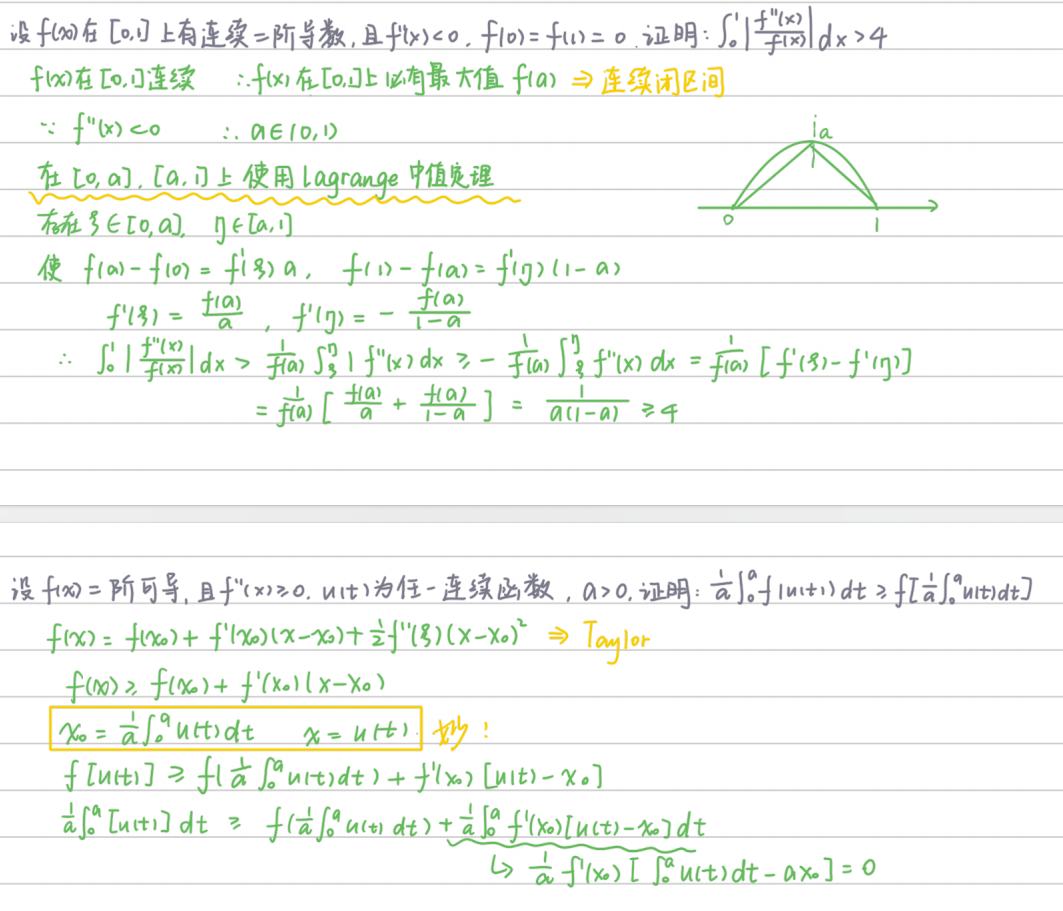 设f(x)在[0,1]上有连续二阶导数,且f''(x)<0, f(0)=f(1)=0.证明:∫₀¹|f''(x)/f(x)|dx>4
f(x)在[0,1]连续 ∴f(x)在[0,1]上必有最大值 f(a) ⇒ 连续闭区间
∵ f''(x)<0 ∴ a∈(0,1)
a
0
1
在[0,a],[a,1]上使用Lagrange中值定理
存在ξ∈[0,a], η∈[a,1]
使 f(a)-f(0)=f'(ξ)a, f(1)-f(a)=f'(η)(1-a)
f'(ξ)=f(a)/a, f'(η)=-f(a)/(1-a)
∴ ∫₀¹|f''(x)/f(x)|dx > 1/f(a) ∫_ξ^η |f''(x)dx ≥ -1/f(a) ∫_ξ^η f''(x)dx = 1/f(a) [f'(ξ)-f'(η)]
= 1/f(a) [f(a)/a + f(a)/(1-a)] = 1/(a(1-a)) ≥4
设f(x)二阶可导,且f''(x)≥0, u(t)为任一连续函数, a>0,证明: 1/a ∫₀ᵃ f(u(t))dt ≥ f[1/a ∫₀ᵃ u(t)dt]
f(x)=f(x₀)+f'(x₀)(x-x₀)+½f''(ξ)(x-x₀)² ⇒ Taylor
f(x)≥f(x₀)+f'(x₀)(x-x₀)
x₀=1/a ∫₀ᵃ u(t)dt x=u(t). 妙!
f[u(t)] ≥ f(1/a ∫₀ᵃ u(t)dt)+f'(x₀)[u(t)-x₀]
1/a ∫₀ᵃ [u(t)]dt ≥ f(1/a ∫₀ᵃ u(t)dt)+1/a ∫₀ᵃ f'(x₀)[u(t)-x₀]dt
↳ 1/a f'(x₀)[∫₀ᵃ u(t)dt-ax₀]=0